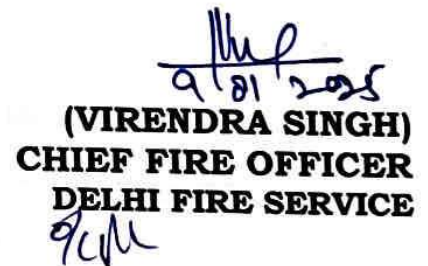 9/01/2025
(VIRENDRA SINGH)
CHIEF FIRE OFFICER
DELHI FIRE SERVICE